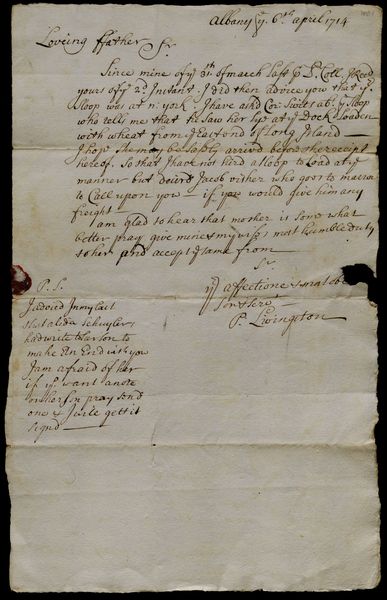 Albany y. 6th april 1714
Loveing ffather Sr
Since mine of ye 31th of march last I Recd
yours of ye 2d Instant. I did then advice you that ye
Sloop was at n: york. I have askd Cor: ye Sloop
who tells me that he Saw her lye at ye Dock Loaden
with wheat from ye East end of Long Island —
I hope She may be Safely arrived before the receipt
hereof. So that I have not hired a Sloop to Load at ye
manner but desird Jacob visher who goes to
to Call upon you — if you would give him any
freight —
I am glad to hear that mother is Some what
better pray give mine & my wife's most humble duty
to her and accept ye same from
Sr
yr affectione & most obe
Son & Serv
P. Livingston
P. S.
I advised In my last
that alida Schuyler
had write to her son to
make An End with you
I am afraid of her
if yo want a note
on her son pray send
one & I wile gett it
Signd